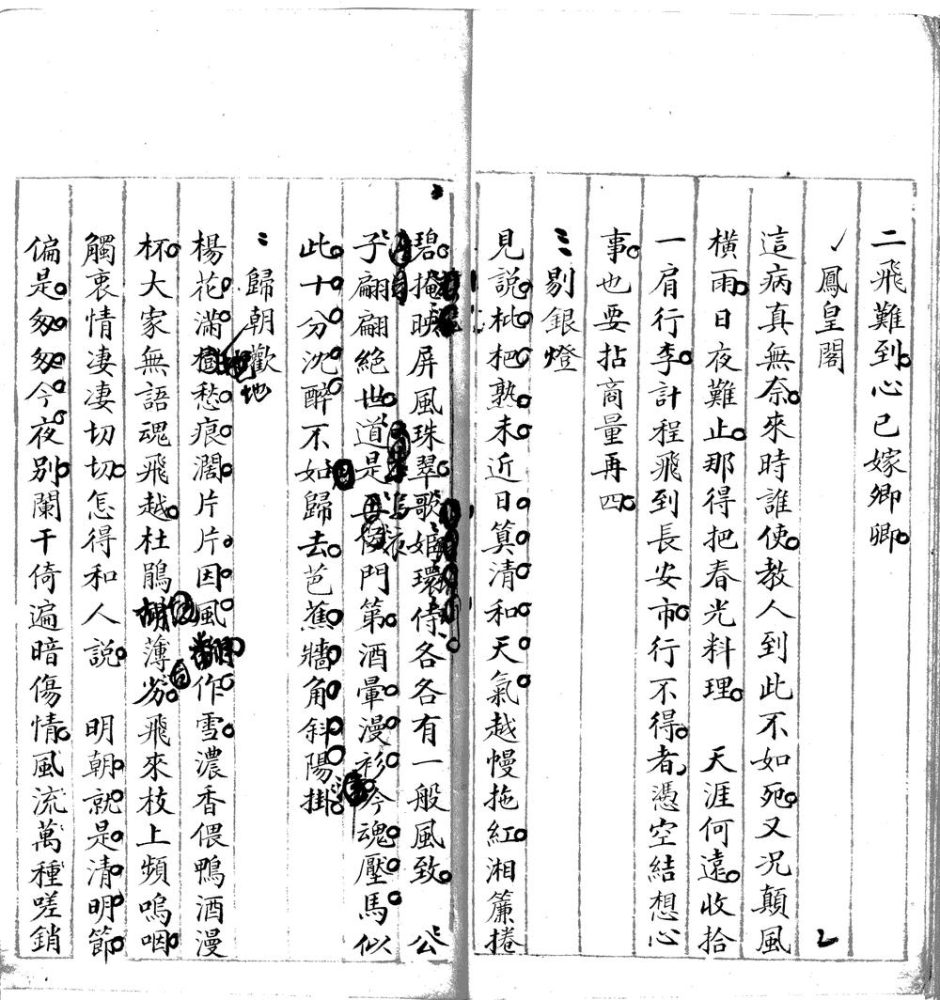 二飛難到心已嫁卿卿
鳳皇閣
這病真無奈來時誰使教人到此不如死又況顛風
橫雨日夜難止那得把春光料理　天涯何遠收拾
一肩行李計程飛到長安市行不得者憑空結想心
事也要拈商量再四
剔銀燈
見說枇杷熟未近日筭清和天氣越幔拖紅湘簾捲
碧掩映屏風珠翠歌姬環侍各各有一般風致　公
子翩翩絶世道是門第酒暈漫衫今魂壓馬似
此十分沈醉不如歸去芭蕉牆角斜陽掛
歸朝歡
楊花滿地愁痕濶片片因風翻作雪濃香偎鴨酒漫
杯大家無語魂飛越杜鵑薄劣飛來枝上頻嗚咽
觸衷情凄凄切切怎得和人說　明朝就是清明節
偏是匆匆今夜别闌干倚遍暗傷情風流萬種嗟銷